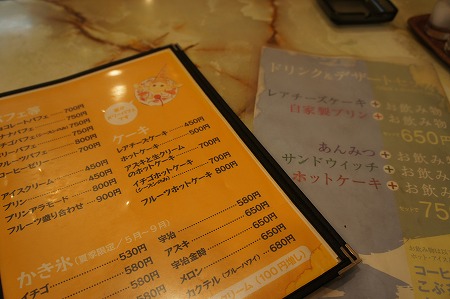 パフェ等
コレートパフェ 700円
ナナパフェ 700円
チゴパフェ(シーズンのみ) 750円
リーパフェ 800円
ルーツパフェ 800円
コーヒーパフェ 700円
アイスクリーム 450円
プリン 450円
プリンアラモード 800円
フルーツ盛り合わせ 900円
ケーキ
レアチーズケーキ 450円
ホットケーキ 500円
アズキと生クリーム
のホットケーキ 700円
イチゴホットケーキ
(シーズンのみ) 700円
フルーツホットケーキ 800円
かき氷(夏季限定/5月〜9月)
イチゴ 530円
580円
580円
宇治 580円
アズキ 580円
宇治金時 650円
メロン 680円
カクテル(ブルーハワイ) 680円
クリーム(100円増し)
ドリンク&デザート
レアチーズケーキ+お飲み
自家製プリン+お飲み
650円
あんみつ+お飲
サンドウィッチ+お飲み
ホットケーキ+お飲み
75
コーヒ
こぶ